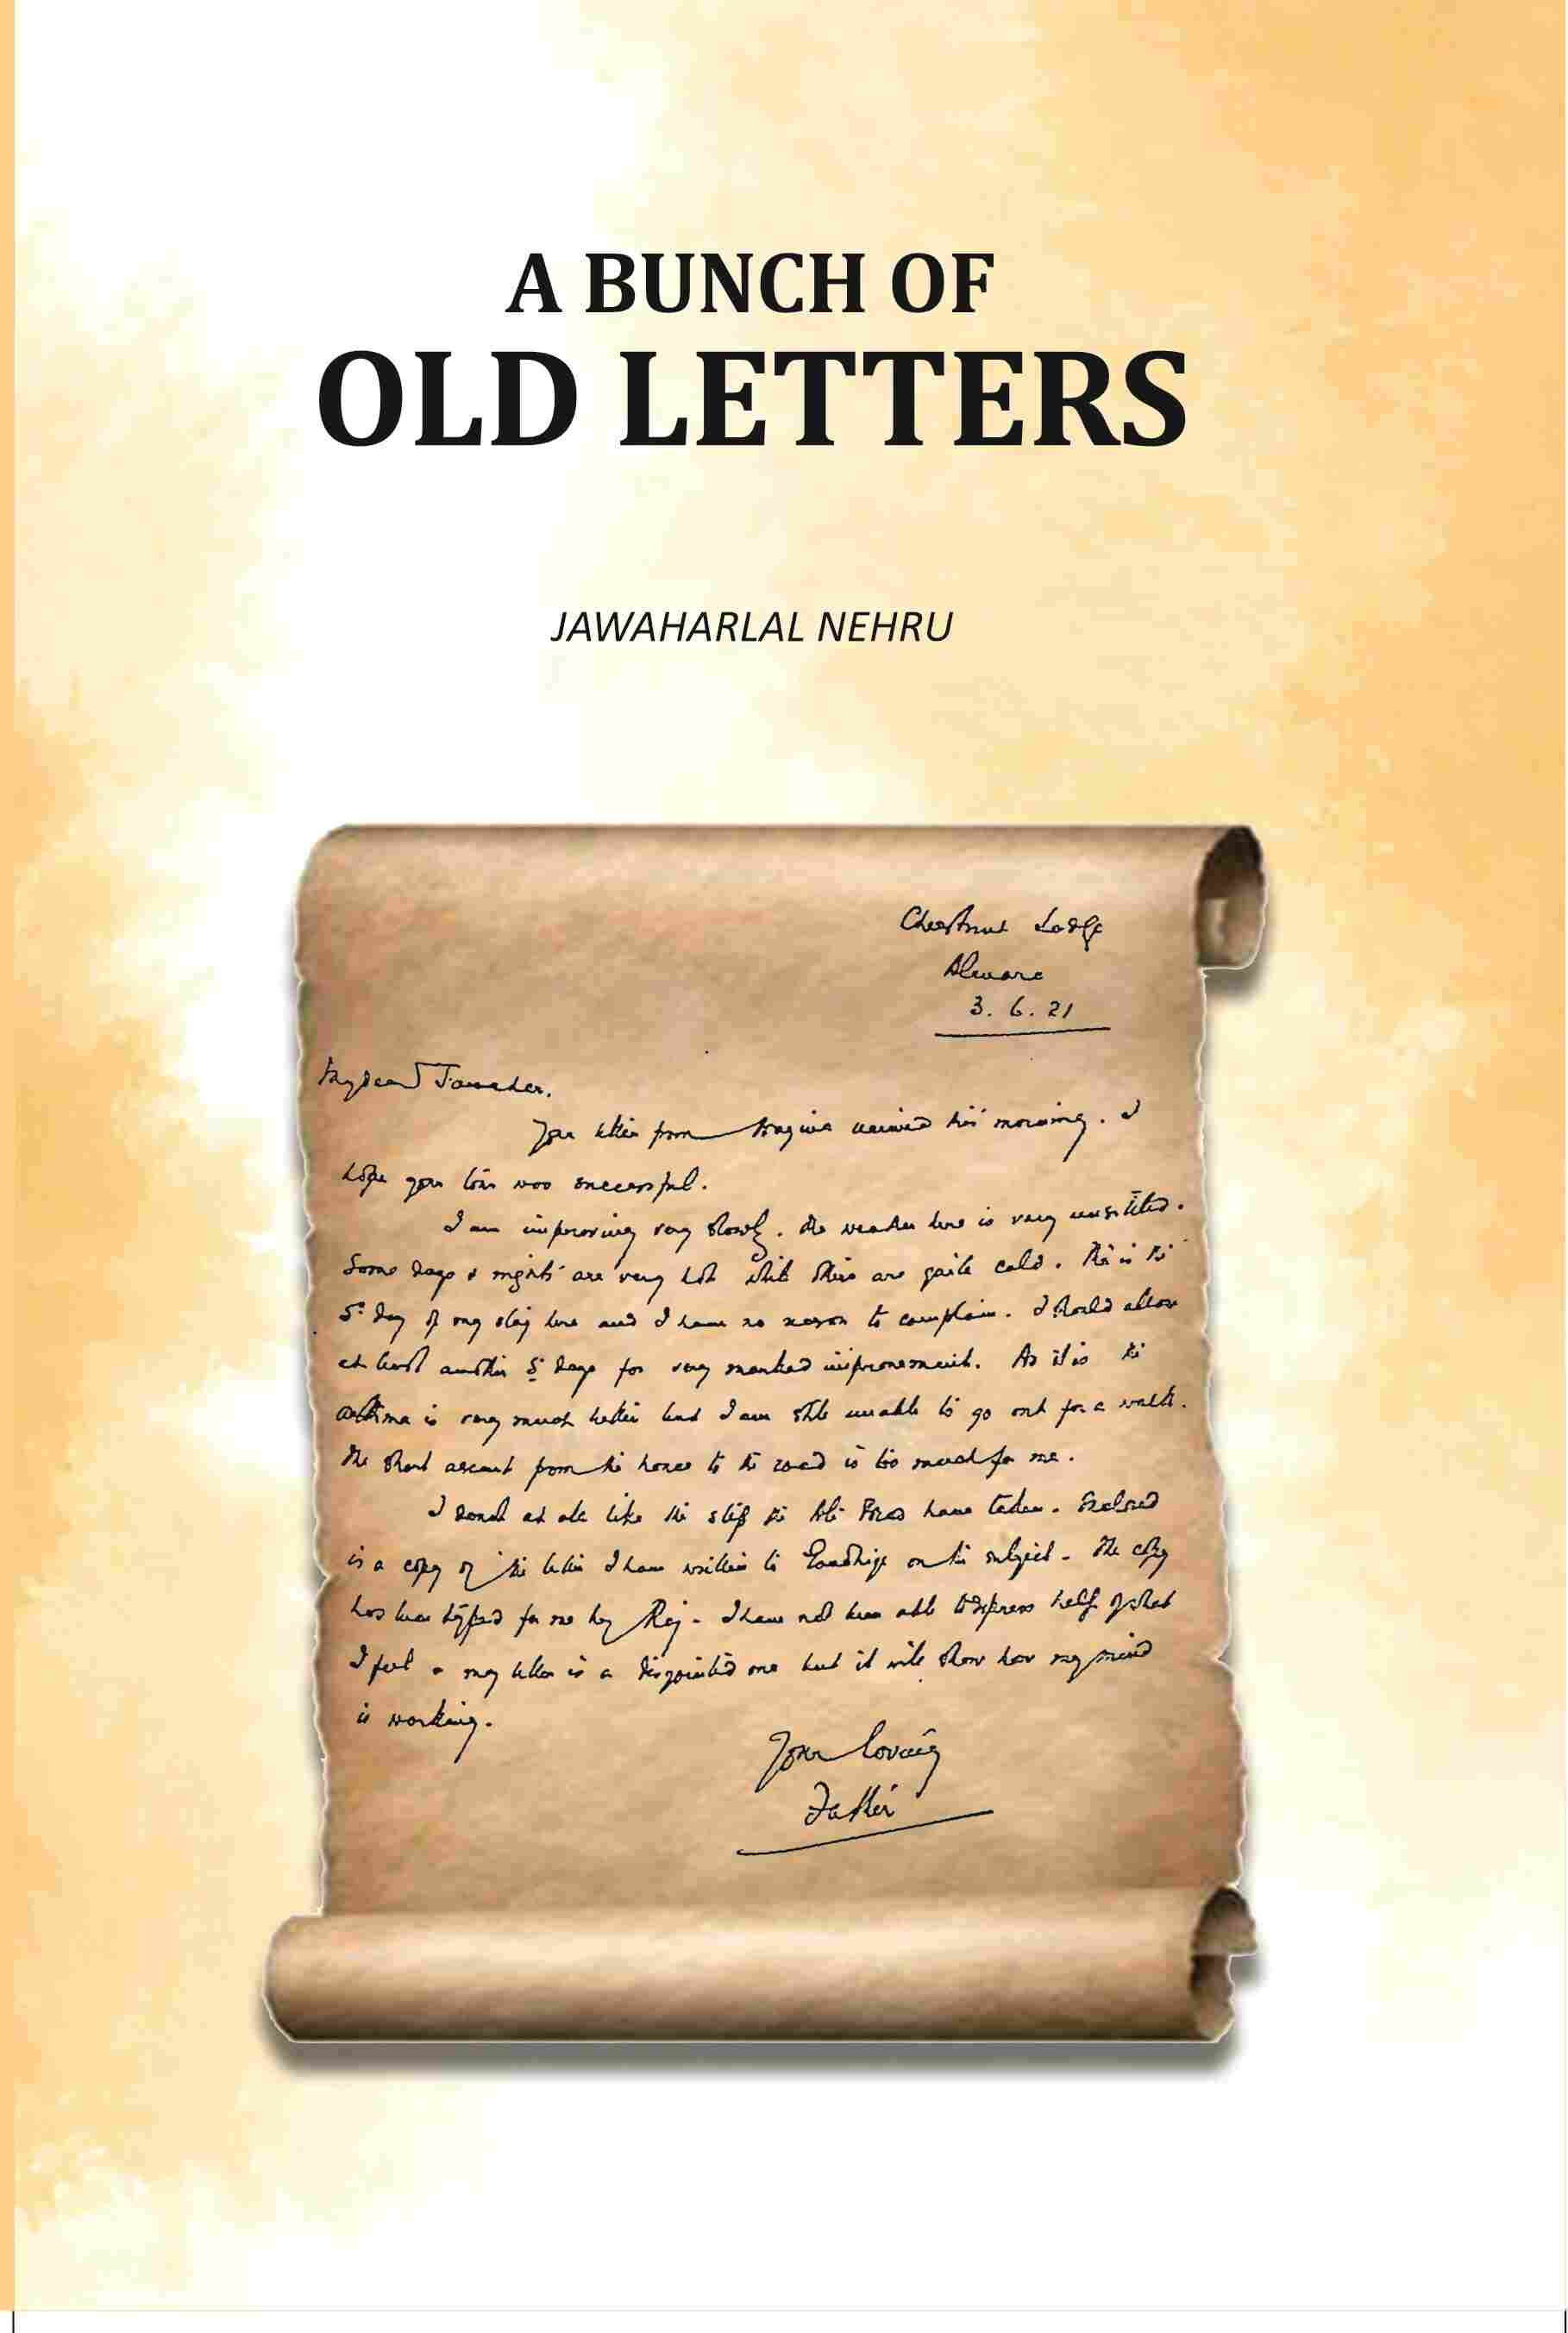 A BUNCH OF
OLD LETTERS
JAWAHARLAL NEHRU
Chestnut Lodge
3. 6. 21
My dear Jawahar.
Your letter from received this morning. I
hope your tour was successful.
I am improving very slowly. The weather here is very unsettled.
Some days & nights are very hot while others are quite cold. This is the
5th day of my stay here and I have no reason to complain. I should allow
at least another 5 days for very marked improvement. As it is the
asthma is very much better but I am still unable to go out for a walk.
The short ascent from the house to the road is too much for me.
I do not at all like the step the Ali Bros have taken. Enclosed
is a copy of the letter I have written to Gandhiji on the subject. The copy
has been typed for me by Raj. I have not been able to express half of what
I feel & my letter is a disjointed one but it will show how my mind
is working.
Your loving
Father